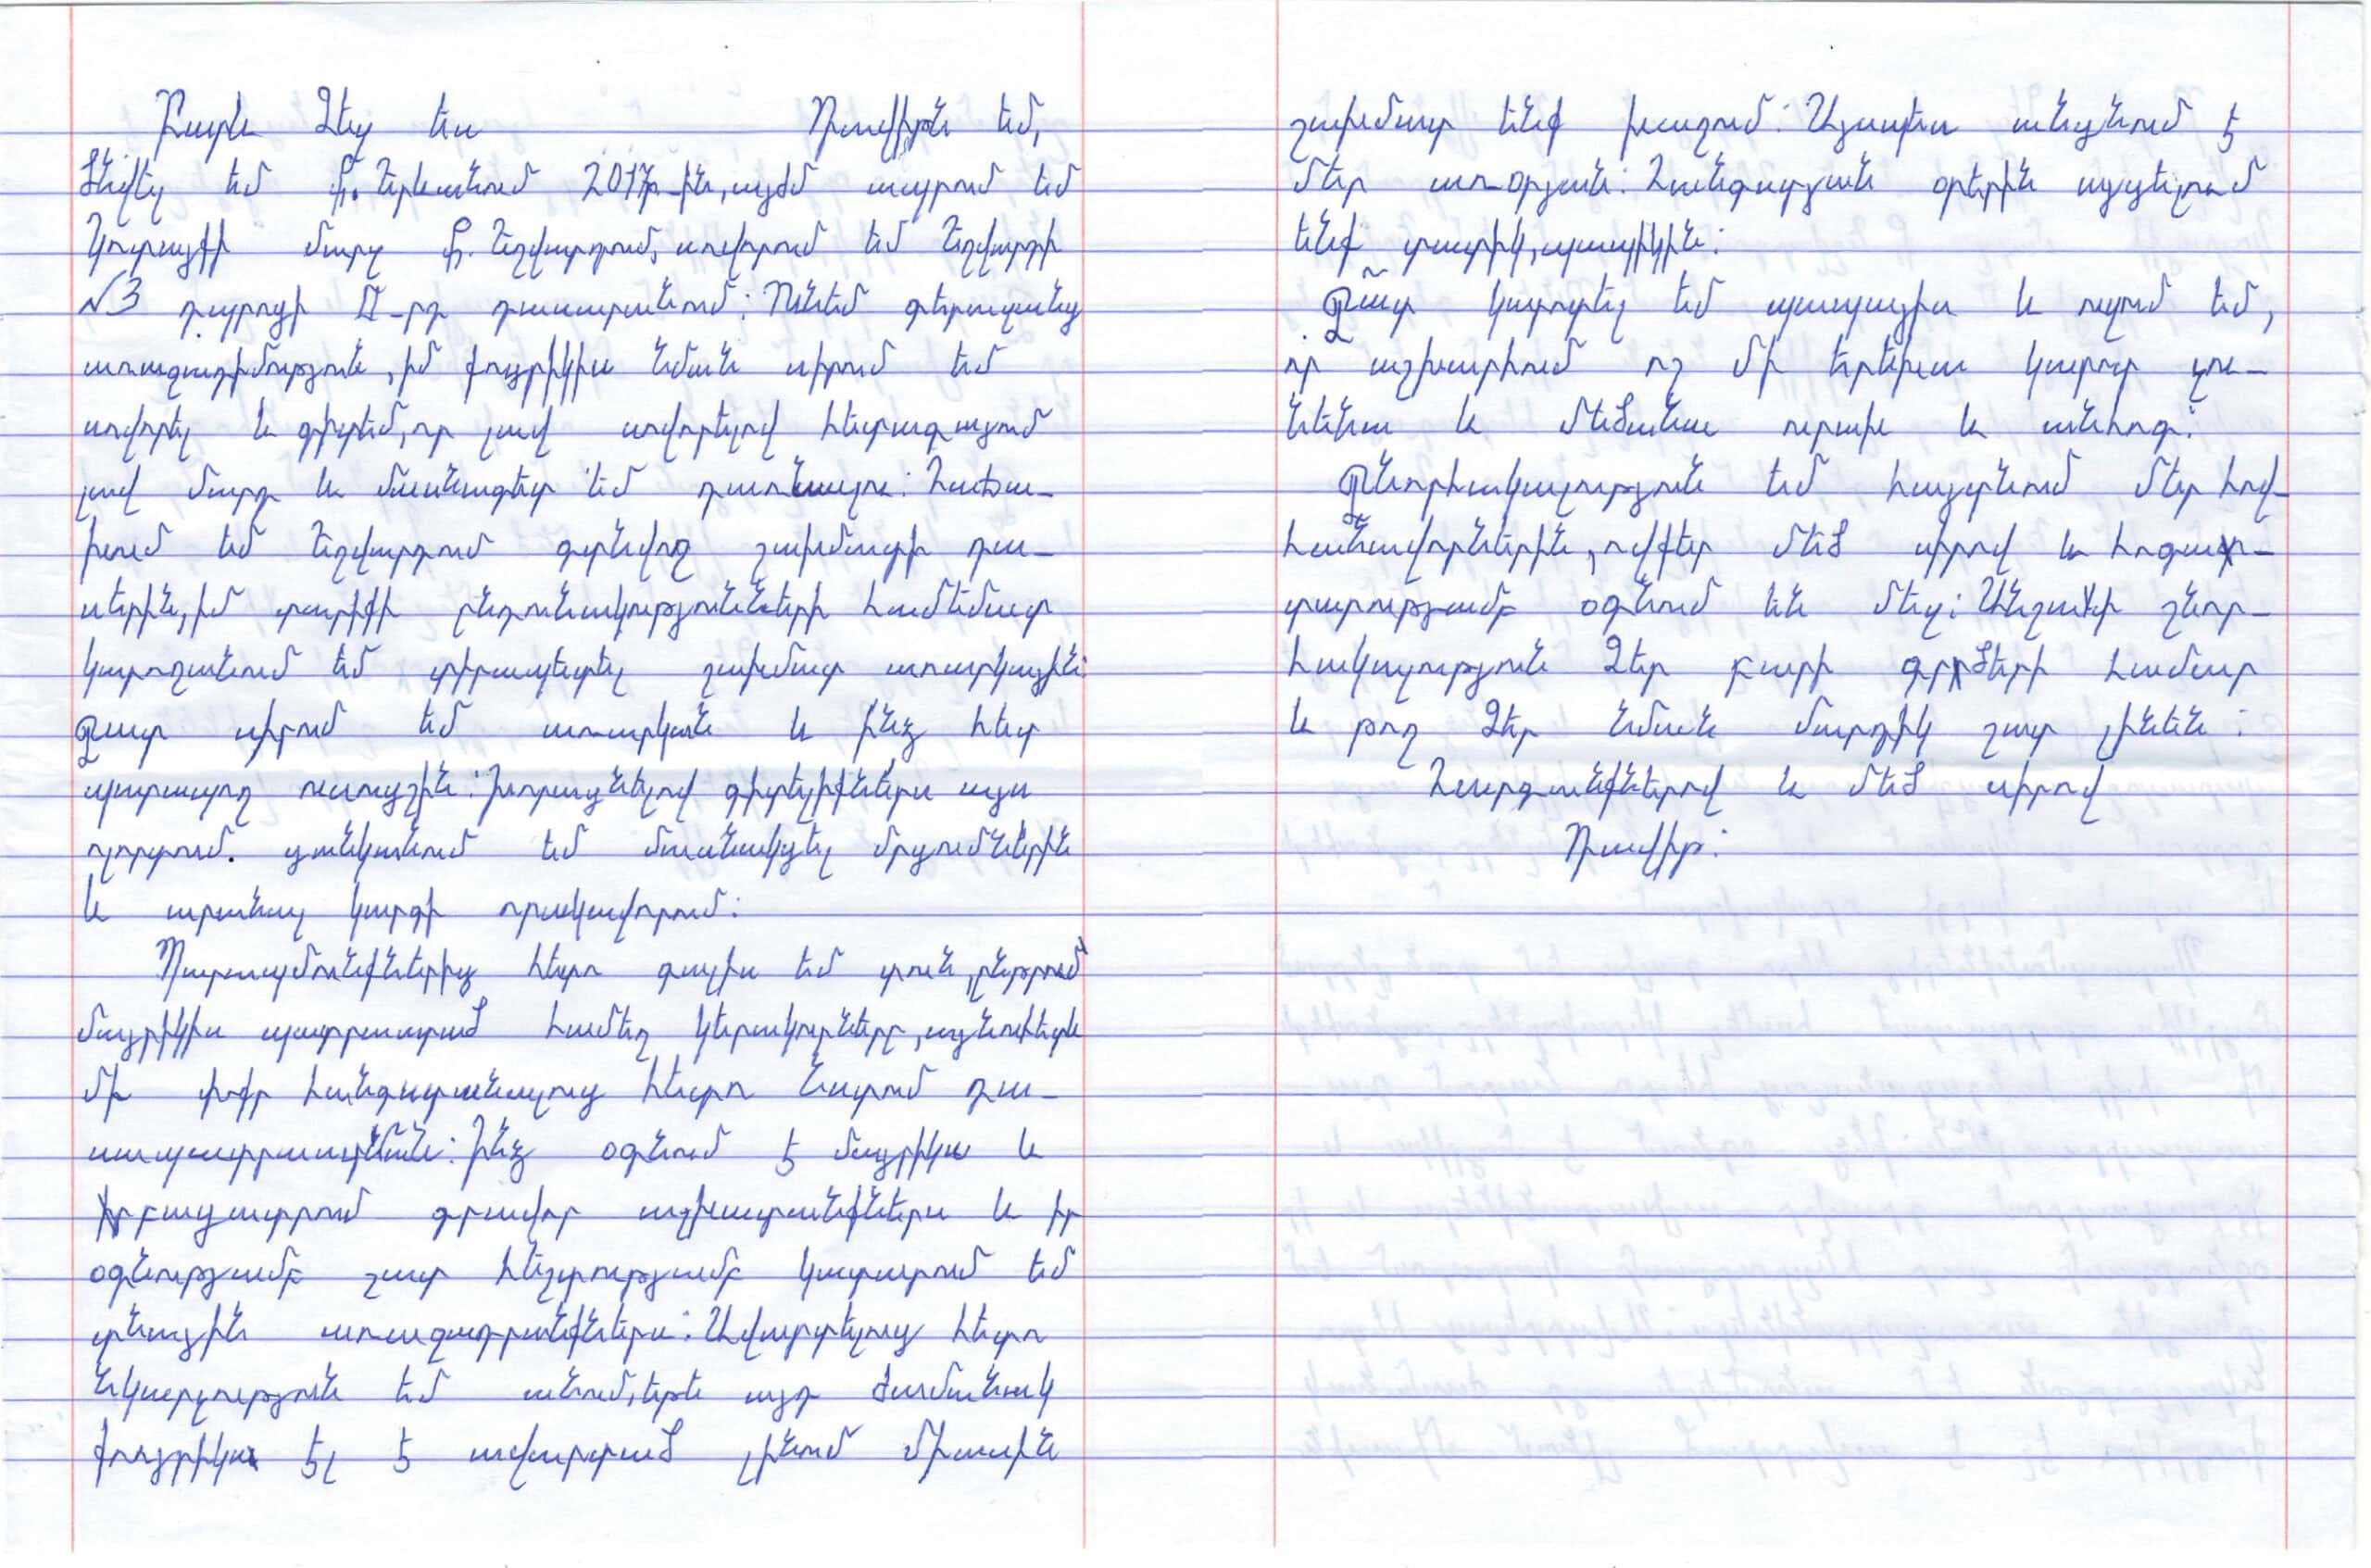 Բարև Ձեզ ես Դավիթն եմ,
ծնվել եմ ք. Երևանում 2017թ-ին, այժմ ապրում եմ
Կոտայքի մարզ ք. Եղվարդում, սովորում եմ Եղվարդի
N3 դպրոցի II-րդ դասարանում: Ունեմ գերազանց
առաջադիմություն, իմ քույրիկիս նման սիրում եմ
սովորել և գիտեմ, որ լավ սովորելով հետագայում
լավ մարդ և մասնագետ եմ դառնալու: Հաճա-
խում եմ Եղվարդում գտնվող շախմատի դա-
սերին, իմ տարիքի ընդունակությունների համեմատ
կարողանում եմ տիրապետել շախմատ առարկային:
Շատ սիրում եմ առարկան և ինձ հետ
պարապող ուսուցչին: Խորացնելով գիտելիքներս այս
ոլորտում. ցանկանում եմ մասնակցել մրցումներին
և ստանալ կարգի որակավորում:
Պարապմունքներից հետո գալիս եմ տուն, ընթրում
մայրիկիս պատրաստած համեղ կերակուրները, այնուհետև
մի փոքր հանգստանալուց հետո նստում դա-
սապատրաստման: Ինձ օգնում է մայրիկս և
բացատրում գրավոր աշխատանքներս և իր
օգնությամբ շատ հեշտությամբ կատարում եմ
տնային առաջադրանքներս: Ավարտելուց հետո
նկարչություն եմ անում, եթե այդ ժամանակ
քույրիկս էլ է ավարտած լինում միասին
շախմատ ենք խաղում: Այսպես անցնում է
մեր առօրյան: Հանգստյան օրերին այցելում
ենք տատիկ, պապիկին:
Շա՜տ կարոտել եմ պապայիս և ուզում եմ,
որ աշխարհում ոչ մի երեխա կարոտ չու-
նենա և մեծանա ուրախ և անհոգ:
Շնորհակալություն եմ հայտնում մեր հով-
հանավորներին, ովքեր մեծ սիրով և հոգա-
տարությամբ օգնում են մեզ: Անչափ շնոր-
հակալություն Ձեր բարի գործերի համար
և թող Ձեր նման մարդիկ շատ լինեն:
Հարգանքներով և մեծ սիրով
Դավիթ: